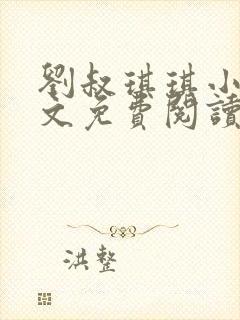 劉叔琪琪小
文免費閱讀
洪整